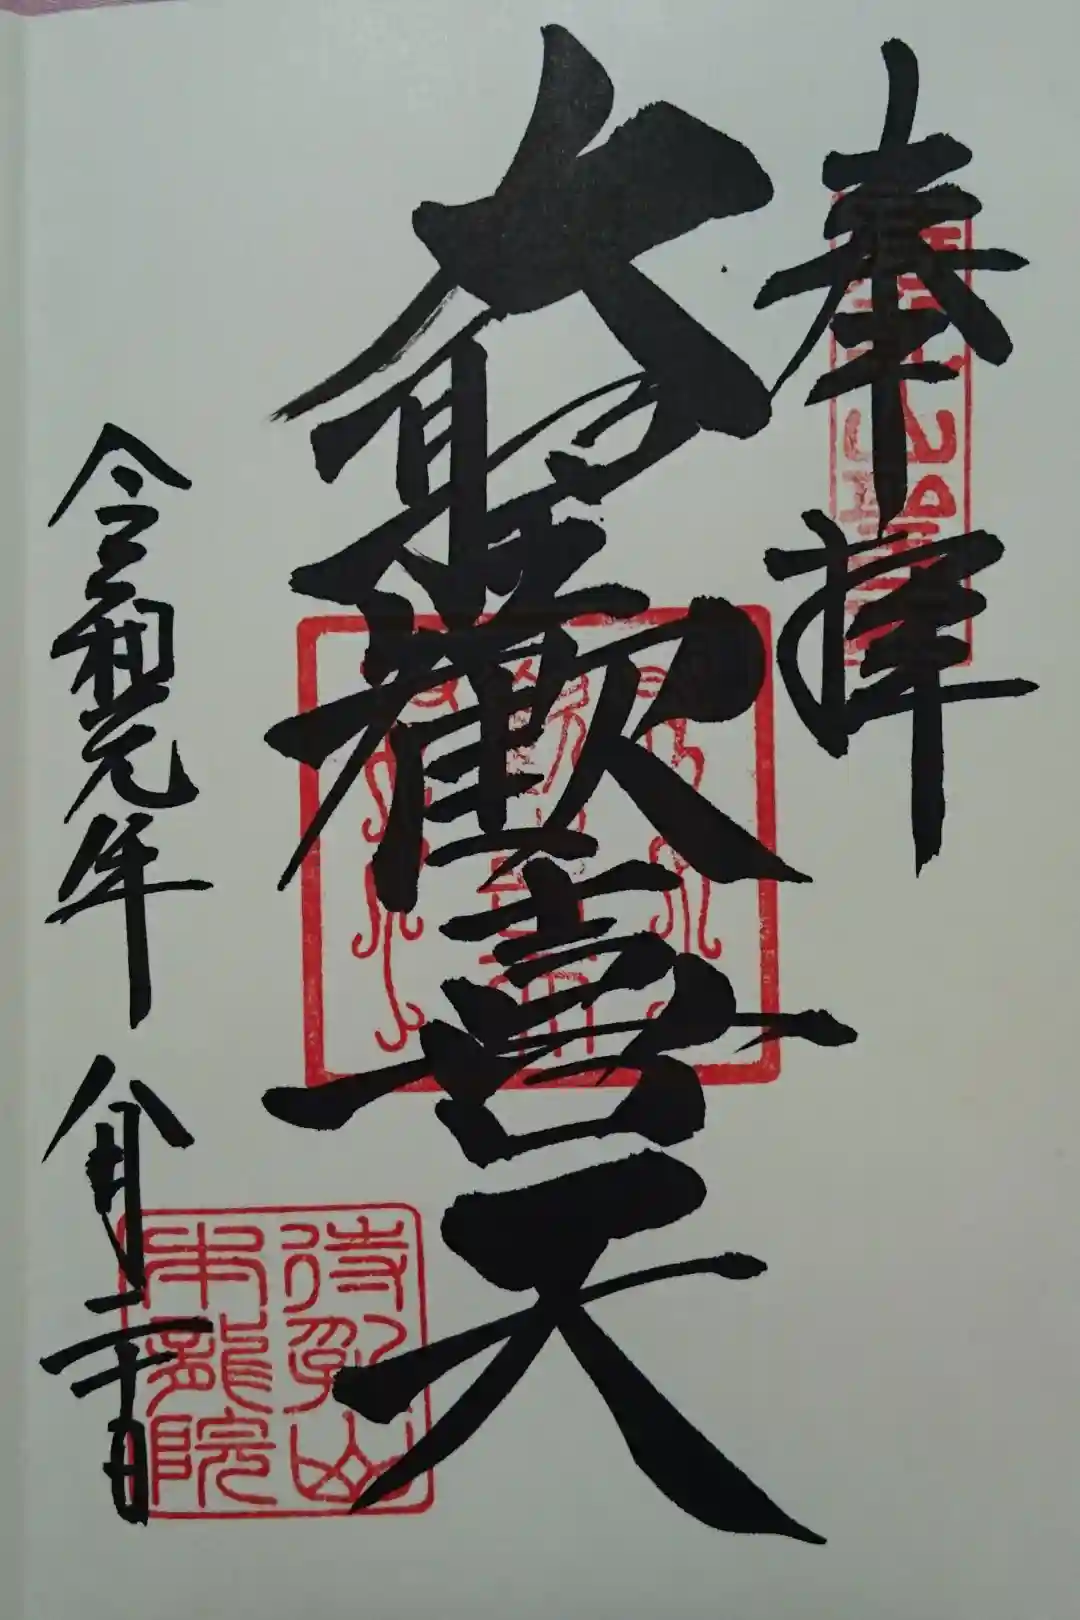 奉拝
大聖歓喜天
令和元年 八月二十日
待乳山
本龍院